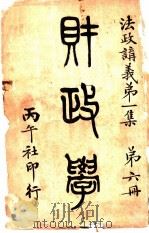 法政講義第一集 第六冊
財政學
丙午社印行